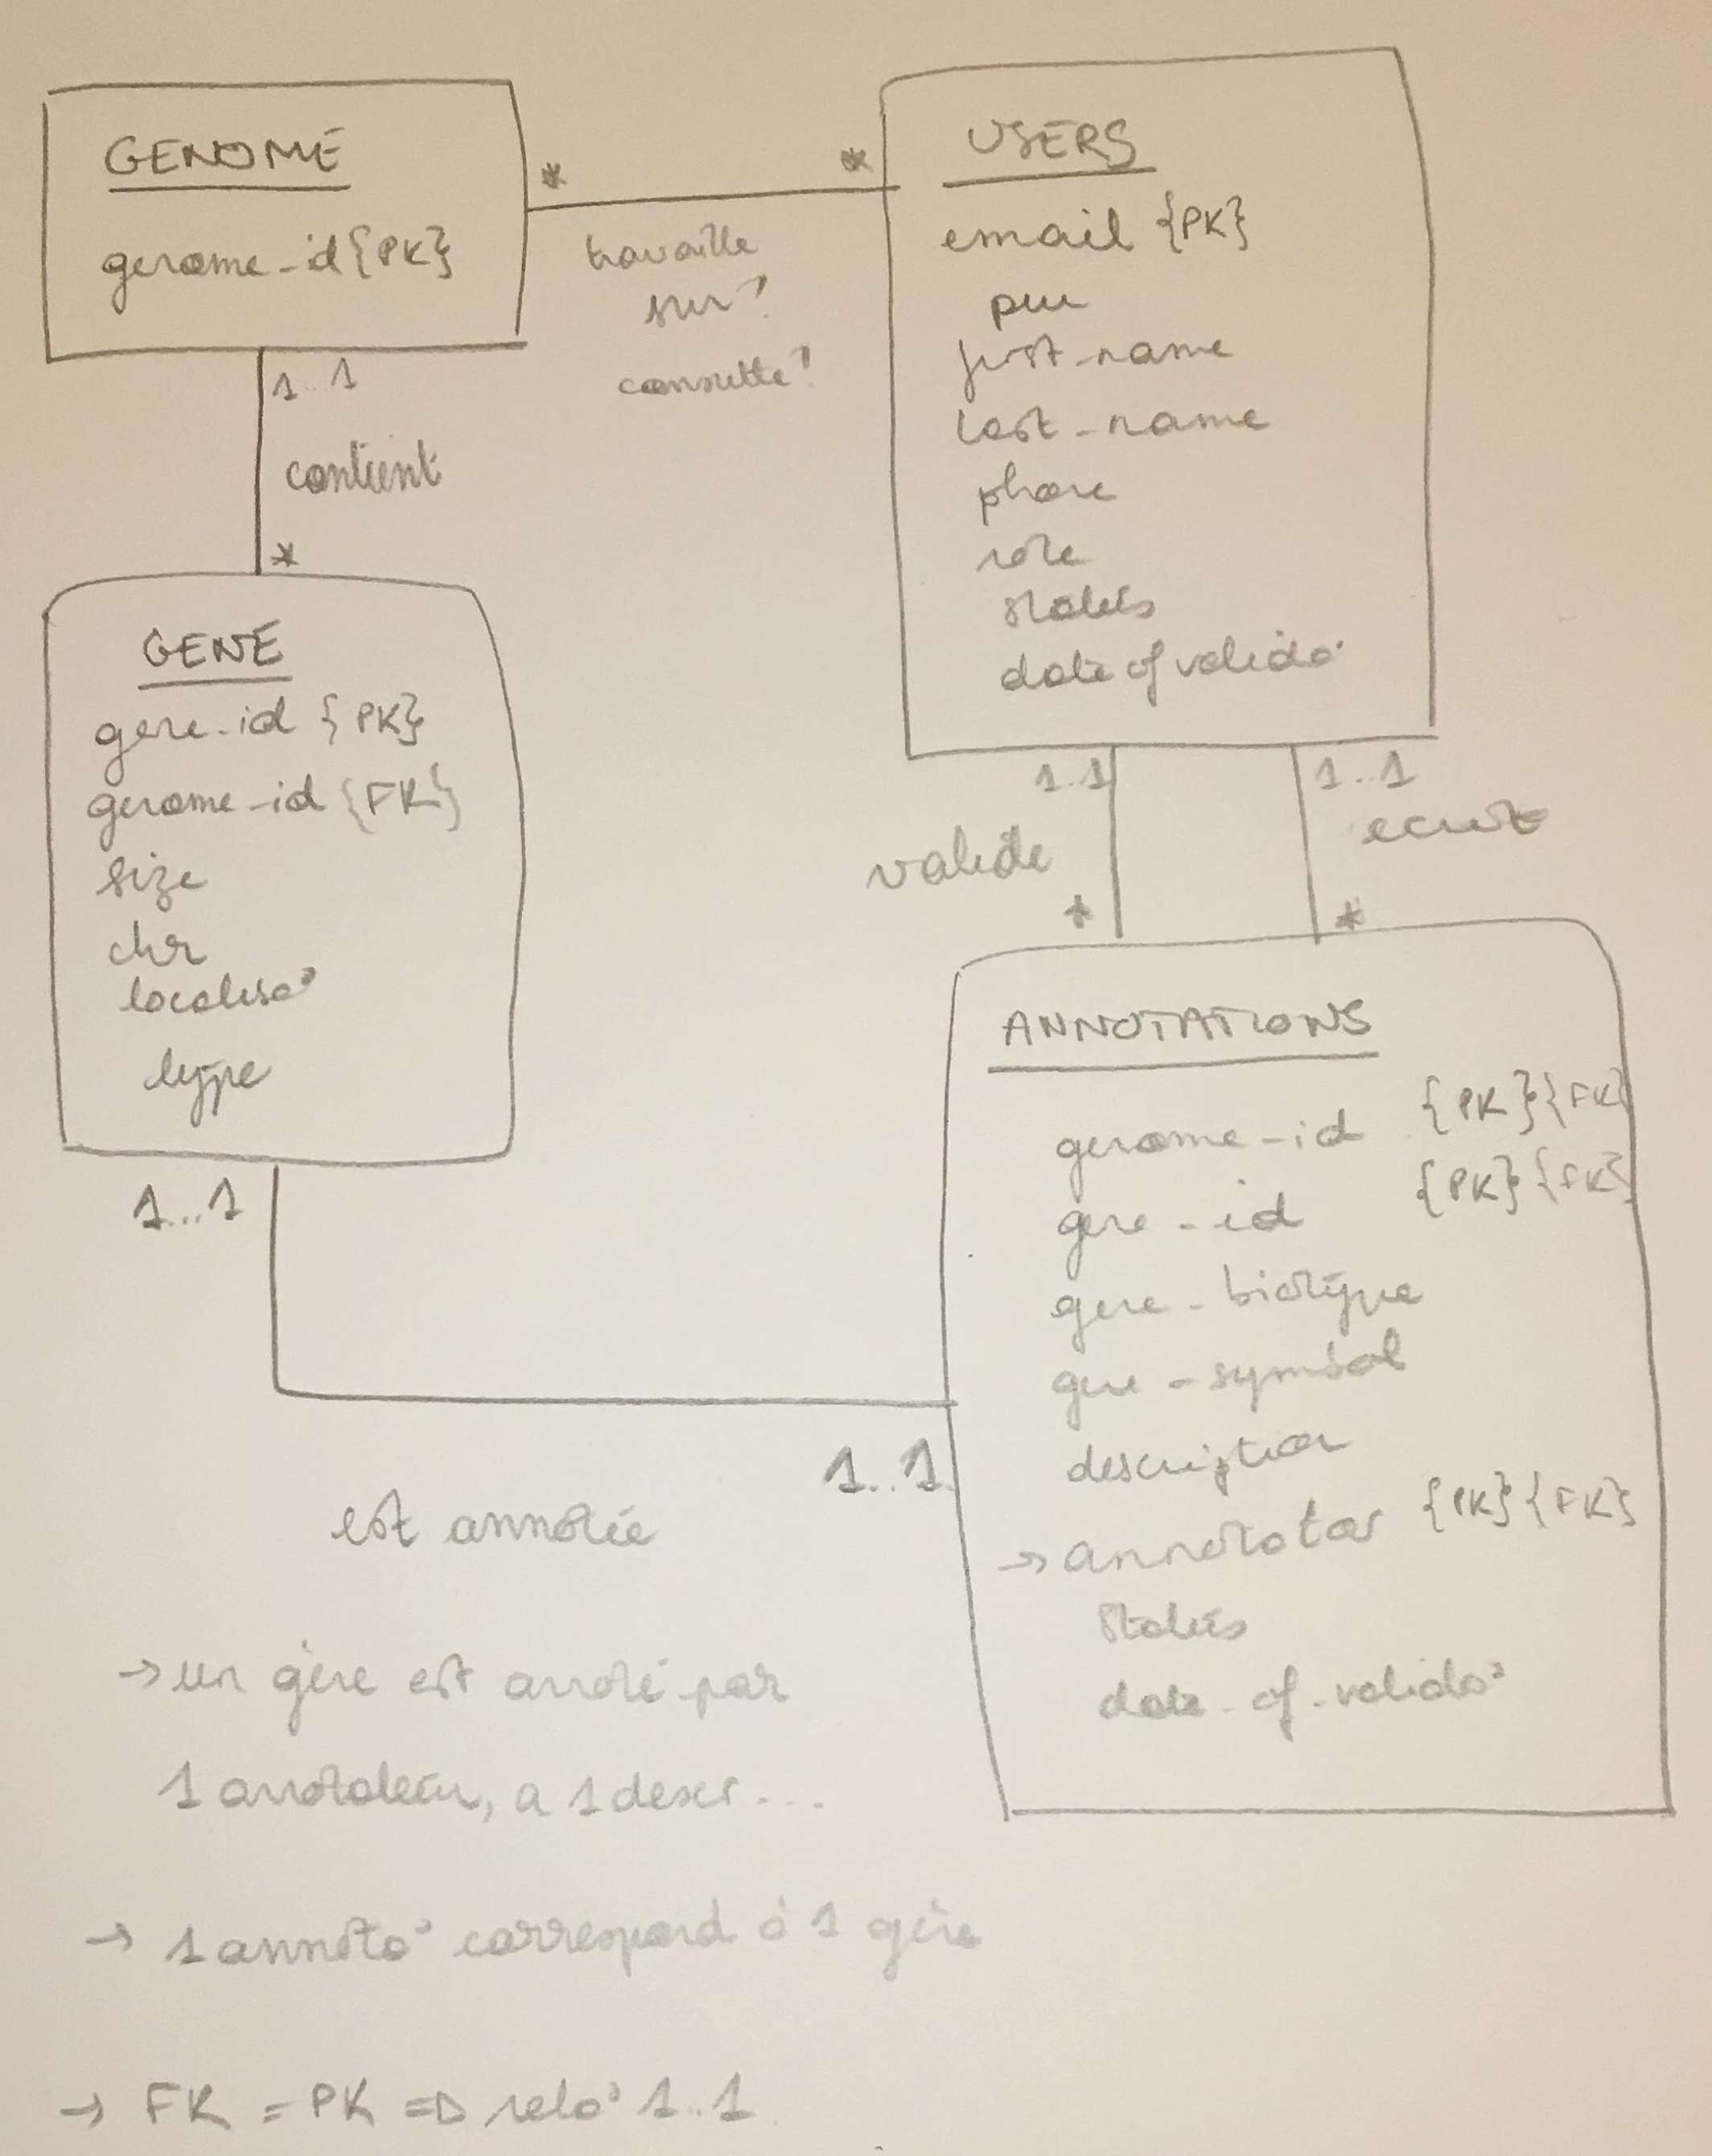 GENOME
genome-id {PK}
*
*
travaille
sur?
consulte?
USERS
email {PK}
first-name
last-name
phone
role
status
date of valida°
1..1
contient
*
GENE
gene-id {PK}
genome-id {FK}
size
chr
localisa°
type
1..1
valide
*
1..1
ecrit
*
ANNOTATIONS
genome-id {PK}{FK}
gene-id {PK}{FK}
gene-biotype
gene-symbol
description
→ annotator {PK}{FK}
status
date-of-valida°
1...1
1..1
est annotée
→ un gène est annoté par
1 annotateur, a 1 descr...
→ 1 annota° correspond à 1 gène
→ FK = PK => rela° 1..1